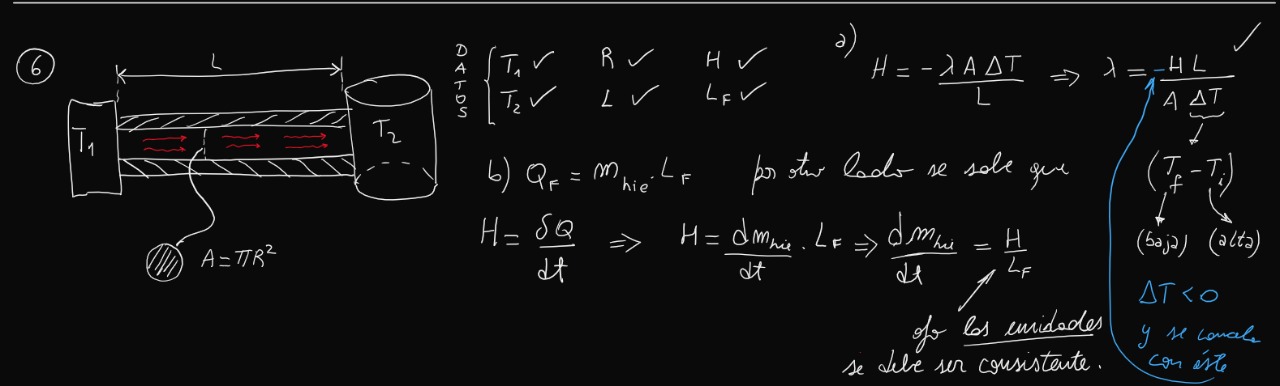 6
L
T₁
T₂
A = πR²
DATOS
T₁ ✓ R ✓ H ✓
T₂ ✓ L ✓ L_F ✓
a)
H = - λ A ΔT / L ⇒ λ = - H L / A ΔT ✓
(T_f - T_i)
(baja) (alta)
ΔT < 0
y se cancela
con éste
b) Q_F = m_hie . L_F por otro lado se sabe que
H = δQ / dt ⇒ H = dm_hie / dt . L_F ⇒ dm_hie / dt = H / L_F
ojo las unidades
se debe ser consistente.